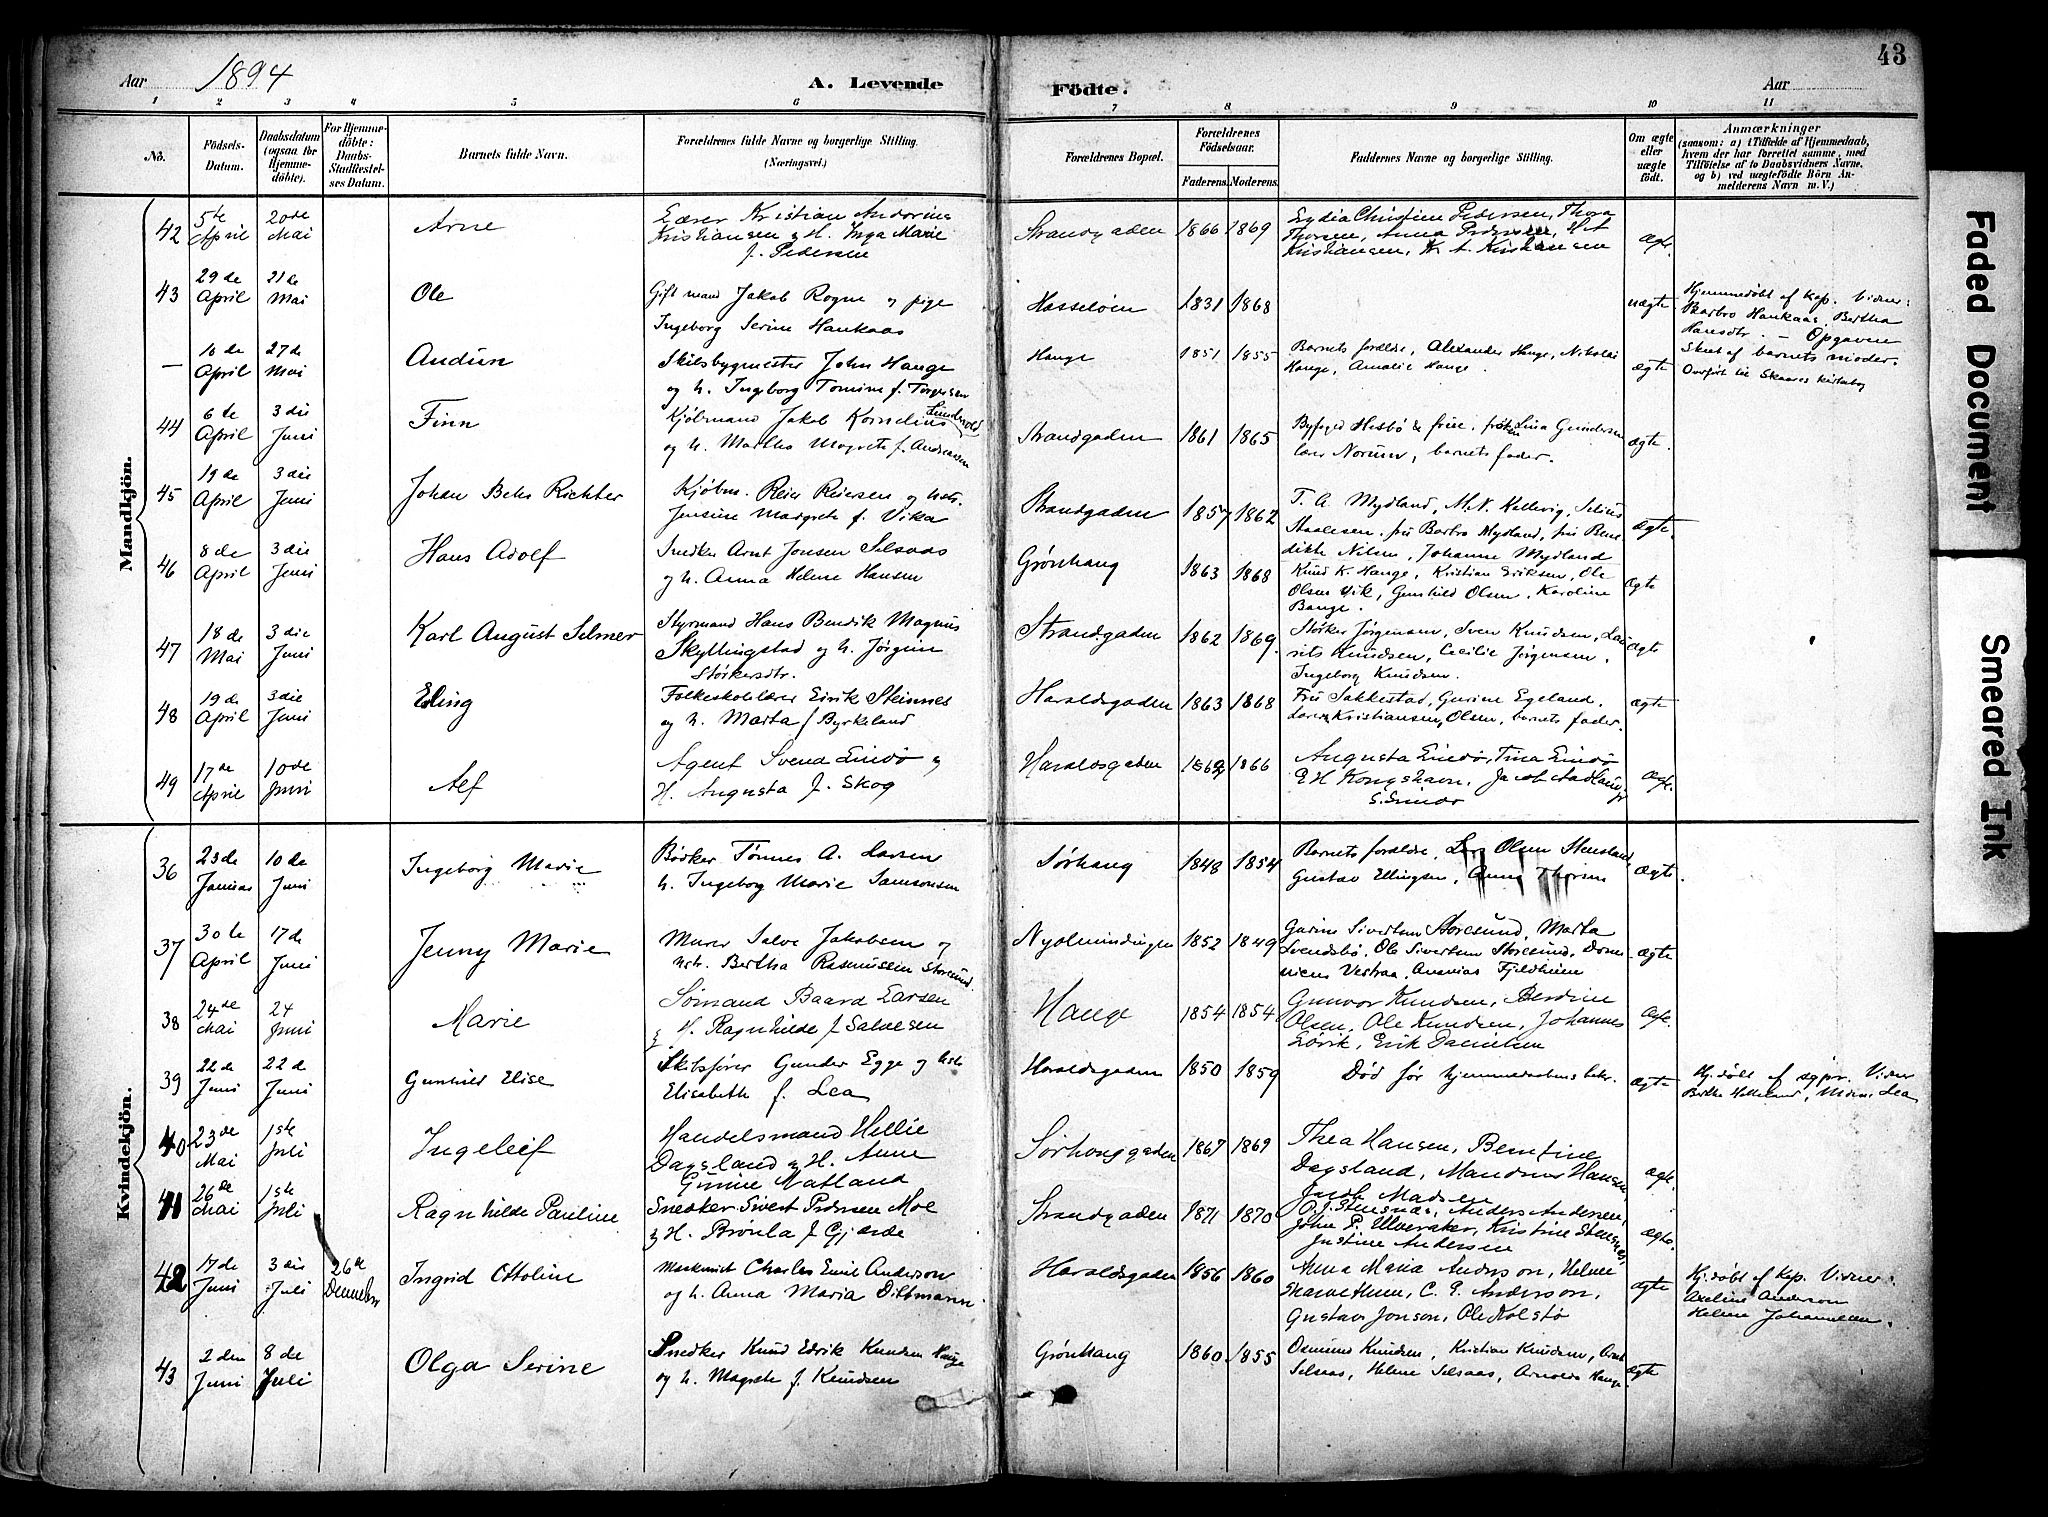 43
Aar 1894
A. Levende
Födte.
Aar
1 2 3 4 5 6 7 8 9 10 11
No.
Födsels-
Datum.
Daabsdatum
(ogsaa for
Hjemme-
döbte).
For Hjemme-
döbte:
Daabs-
Stadfæstel-
ses Datum.
Barnets fulde Navn.
Forældrenes fulde Navne og borgerlige Stilling.
(Næringsvei.)
Forældrenes Bopæl.
Forældrenes
Födselsaar.
Faderens. Moderens.
Faddernes Navne og borgerlige Stilling.
Om ægte
eller
uægte
födt.
Anmærkninger
(saasom: a) i Tilfælde af Hjemmedaab,
hvem der har forrettet samme, med
Tilföielse af to Daabsvidners Navne,
og b) ved uægtefödte Börn An-
melderens Navn m. V.)
Mandkjön.
42 5te April 20de Mai
Arne
Kristiansen & H. Inga Marie
f. Pedersen
Strandgaden 1866 1869
Lydia Christine Pedersen, Thora
Thorsen, Anna Pedersen, H. A.
Kristiansen, K. A. Kristiansen
ægte.
43 29de April 21de Mai
Ole
Gift mand Jakob Rogne og pige
Ingeborg Serine Haukaas
Hasseløen 1831 1868
uægte
Hjemmedøbt af Kap. Vidner:
Barbro Haukaas, Bertha
Hansdtr. – Opgaven
Skeet af barnets moder.
— 16de April 27de Mai
Audun
Skibsbygmester John Hauge
og h. Ingeborg Tomine f. Torgersen
Hauge 1851 1855
Barnets forældre, Alexander Hauge, Nikolai
Hauge, Amalie Hauge.
ægte
Overført til Skaares kirkebog
44 6te April 3die Juni
Finn
Kjøbmand Jakob Kornelius
og h. Martha Magrete f. Andreassen
Strandgaden 1861 1865
Byfoged Hesbö & frue, frøken Lina Gundersen
lærer Norum, barnets fader.
ægte.
45 19de April 3die Juni
Johan Behr Richter
Kjøbm. Reier Reiersen og hstr.
Jensine Margrete f. Vika
Strandgaden 1857 1862
T. A. Mydland, M. N. Kallevig, Selius
Staalesen, fru Barbro Mydland, fru Bene
dikte Nilsen, Johanne Mydland
ægte.
46 8de April 3die Juni
Hans Adolf
Snedker Arnt Jonsen Selsaas
og h. Anna Helene Hansen
Grønhaug 1863 1868
Knud K. Hauge, Kristian Eriksen, Ole
Olsen Vik, Gunhild Olsen, Karoline
Bauge.
ægte
47 18de Mai 3die Juni
Karl August Selmer
Styrmand Hans Bendik Magnus
Skyllingstad og h. Jörgine
Størkersdtr.
Strandgaden 1862 1869.
Størker Jörgensen, Sven Knudsen, Lau
rits Knudsen, Cecilie Jörgensen.
Ingeborg Knudsen.
ægte
48 19de April 3die Juni
Erling
Folkeskolelærer Eirik Steinnes
og h. Marta f Byrkeland
Haraldsgaden 1863 1868
Fru Sakkestad, Gurine Egeland,
Lærer Kristiansen, Olsen, barnets fader.
ægte
49 17de April 10de Juni
Alf
Agent Svend Lindø og
H. Augusta f. Skog
Haraldsgaden 1862 1866
Augusta Lindø, Tina Lindø
P. H. Kongshavn, Jacob
S. Lindø
ægte.
Kvindekjön.
36 23de Januar 10de Juni
Ingeborg Marie
Bødker Tönnes A. Larsen
h. Ingeborg Marie Samsonsen
Sørhaug 1848 1854
Barnets forældre, Lars Olsen Stensland
Gustav Ellingsen, Anna Thorsen
ægte.
37 30te April 17de Juni
Jenny Marie
Murer Salve Jakobsen og
hstr. Bertha Rasmussen Storesund.
Nyolmindingen 1852 1849
Gurine Sivertsen Storesund, Marta
Svendsbö, Ole Sivertsen Storesund,
Vestraa, Ananias Fjeldheim
ægte
38 24de Mai 24 Juni
Marie
Sømand Baard Larsen
& H. Ragnhilde f Salvesen
Hauge 1854 1854
Gunvor Knudsen, Berdine
Olsen, Ole Knudsen, Johannes
Lörik, Erik Danielsen
ægte.
39 22de Juni 22de Juni
Gunhild Elise
Skibsfører Gunder Egge og hstr.
Elisabeth f. Lea
Haraldsgaden 1850 1859
Död før hjemmedaabens bekr.
ægte
Hj. døbt af
Bertha Helleland, Lea
40 23de Mai 1ste Juli
Ingeleif
Handelsmand Hellie
Dagsland & H. Anne
Gurine Natland
Sørhauggaden 1867 1869
Thea Hansen, Berntine
Dagsland, Mandrup Hansen,
Jacob Madsen
ægte.
41 26de Mai 1ste Juli
Ragnhilde Pauline
Snedker Sivert Pedersen Moe
& H. Brónla f Gjerde
Strandgaden 1871 1870
P. J. Stensnæs, Anders Andersen,
John P. Ulveraker, Kristine Stensnæs,
Justine Andersen
ægte.
42 17de Juni 3die Juli 26de Decembr
Ingrid Ottoline
Maskinist Charles Emil Anderson
og h. Anna Maria Dittmann.
Haraldsgaden 1856 1860
Anna Maria Anderson, Helene
C. E. Anderson,
Gustav Jonson, Ole Kolstø
ægte
Hj. døbt af Kap. Vidner:
Axeline Anderson
Helene Johannesen.
43 2den Juni 8de Juli
Olga Serine
Snedker Knud Edrik Knudsen Hauge
og h. Magrete f. Knudsen
Grønhaug 1860 1855
Osmund Knudsen, Kristian Knudsen, Arnt
Selsaas, Helene Selsaas, Arnoldus Hauge.
ægte
Faded Document
Smeared Ink